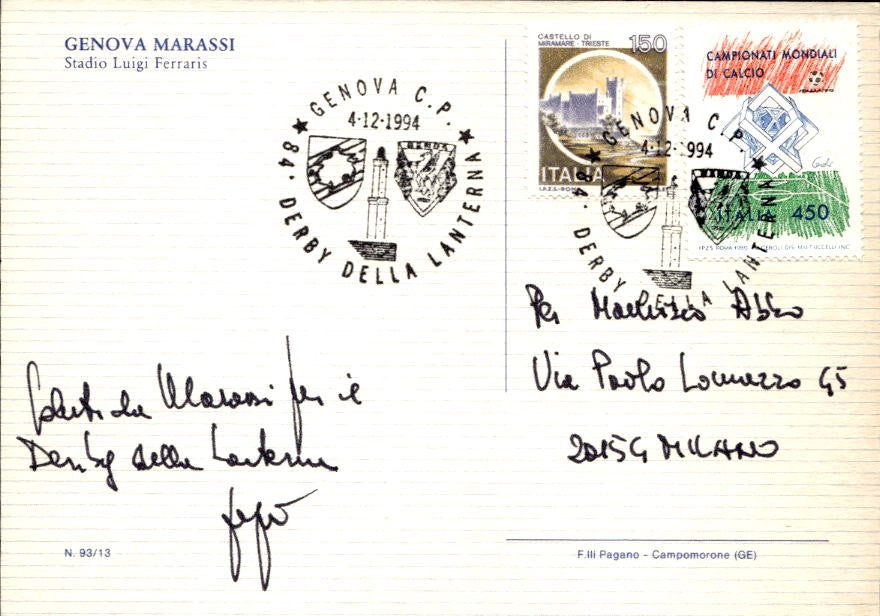 GENOVA MARASSI
Stadio Luigi Ferraris
GENOVA C.P.
4·12·1994
GENOA
★ 84· DERBY DELLA LANTERNA ★
CASTELLO DI
MIRAMARE - TRIESTE
150
ITALIA
I.P.Z.S. - ROMA
CAMPIONATI MONDIALI
DI CALCIO
ITALIA 450
GENOVA C.P.
4·12·1994
GENOA
★ 84· DERBY DELLA LANTERNA ★
Per
Via Paolo Lomazzo 45
20154 MILANO
Saluti da Marassi per il
Derby della Lanterna
N. 93/13
F.lli Pagano - Campomorone (GE)